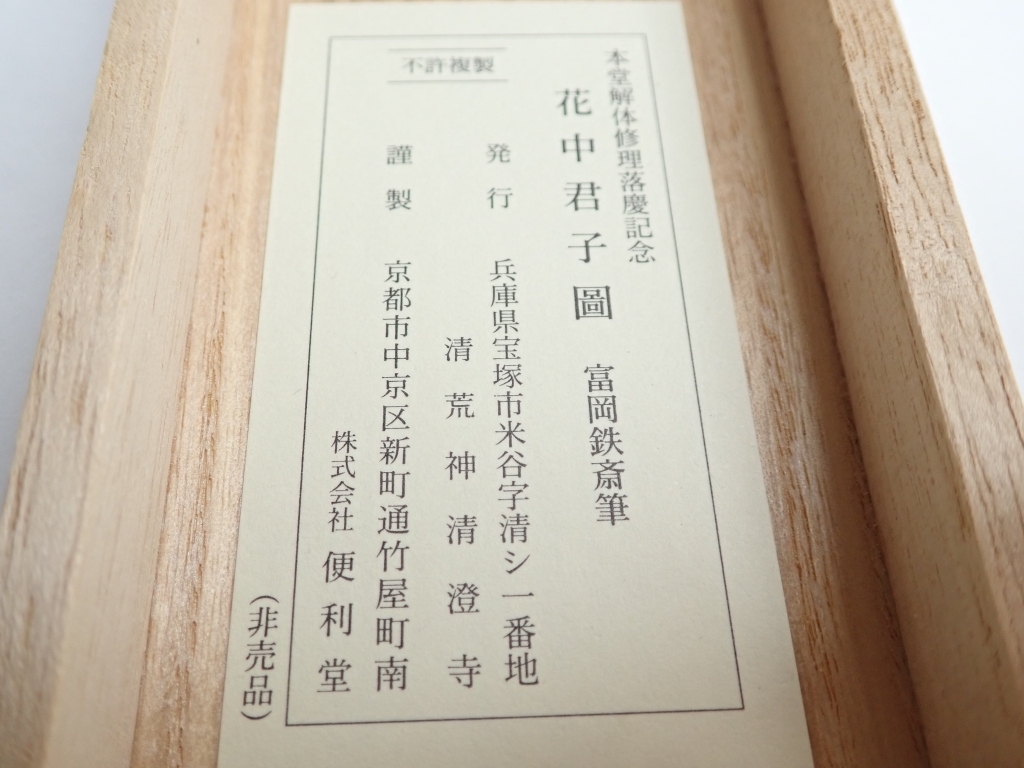 本堂解体修理落慶記念
花中君子圖 富岡鉄斎筆
発行 兵庫県宝塚市米谷字清シ一番地
清荒神清澄寺
謹製 京都市中京区新町通竹屋町南
株式会社 便利堂
不許複製
(非売品)